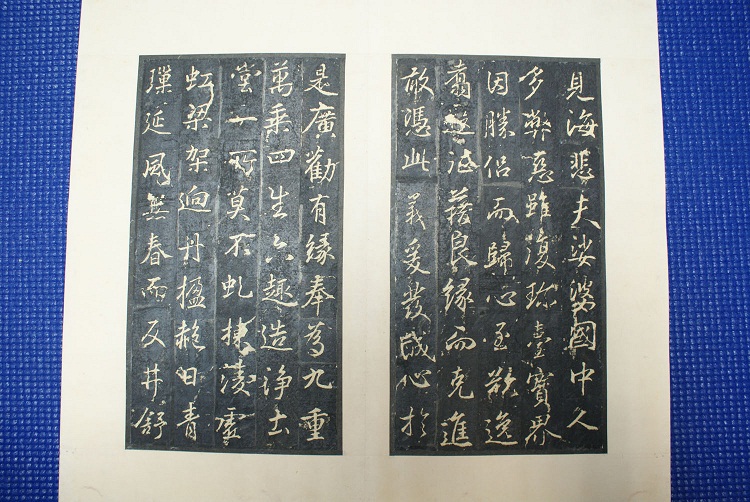 見海悲夫娑婆國中人
多弊惡雖復珎臺寶界
因勝侶而歸心至歡逸
翥藉良緣而克進
敢憑此義爰發誠心於
是廣勸有緣奉為九重
萬乘四生六趣造淨土
堂一所莫不虬棟凌虛
虹梁架迥丹楹赩日青
璅延風無春而反井舒